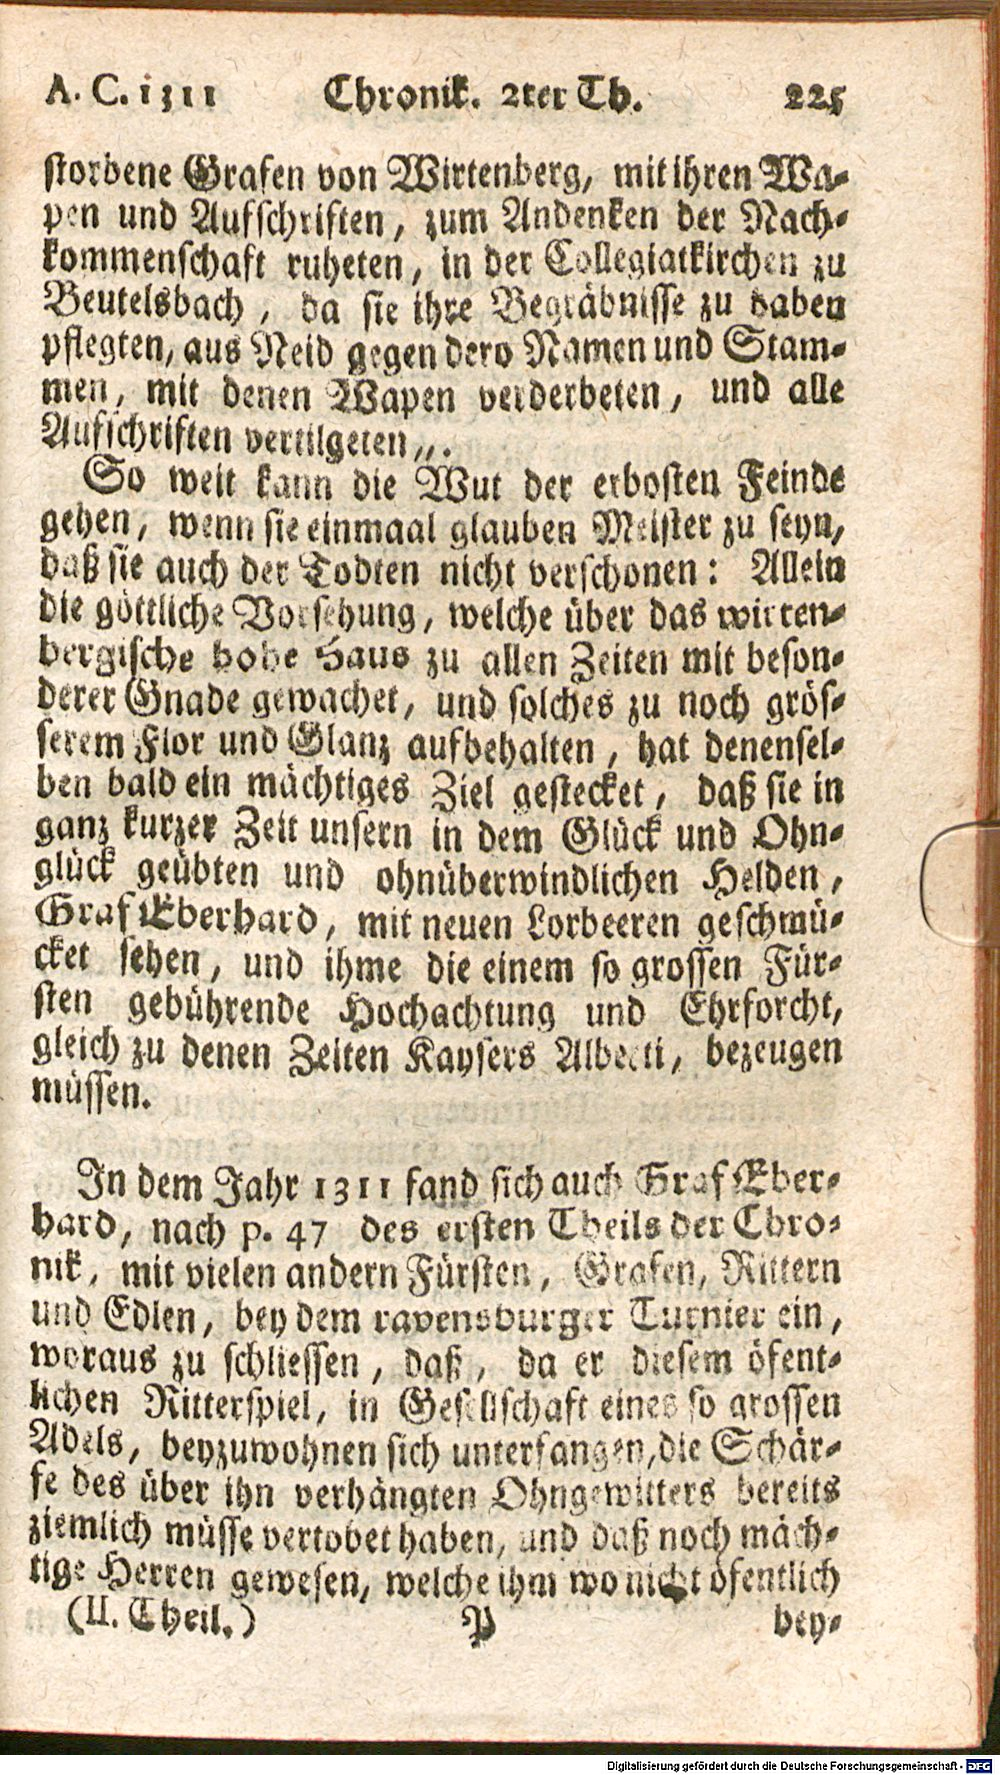 A. C. 1311 Chronik. 2ter Th. 225
storbene Grafen von Wirtenberg, mit ihren Wa-
pen und Aufschriften, zum Andenken der Nach-
kommenschaft ruheten, in der Collegiatkirchen zu
Beutelsbach, da sie ihre Begräbnisse zu haben
pflegten, aus Neid gegen dero Namen und Stam-
men, mit denen Wapen verderbeten, und alle
Aufschriften vertilgeten„.
So weit kann die Wut der erbosten Feinde
gehen, wenn sie einmaal glauben Meister zu seyn,
daß sie auch der Todten nicht verschonen: Allein
die göttliche Vorsehung, welche über das wirten-
bergische hohe Haus zu allen Zeiten mit beson-
derer Gnade gewachet, und solches zu noch grös-
serem Flor und Glanz aufbehalten, hat denensel-
ben bald ein mächtiges Ziel gestecket, daß sie in
ganz kurzer Zeit unsern in dem Glück und Ohn-
glück geübten und ohnüberwindlichen Helden,
Graf Eberhard, mit neuen Lorbeeren geschmü-
cket sehen, und ihme die einem so grossen Für-
sten gebührende Hochachtung und Ehrforcht,
gleich zu denen Zeiten Kaysers Alberti, bezeugen
müssen.
In dem Jahr 1311 fand sich auch Graf Eber-
hard, nach p. 47 des ersten Theils der Chro-
nik, mit vielen andern Fürsten, Grafen, Rittern
und Edlen, bey dem ravensburger Turnier ein,
woraus zu schliessen, daß, da er diesem öfent-
lichen Ritterspiel, in Gesellschaft eines so grossen
Adels, beyzuwohnen sich unterfangen, die Schär-
fe des über ihn verhängten Ohngewitters bereits
ziemlich müsse vertobet haben, und daß noch mäch-
tige Herren gewesen, welche ihm wo nicht öfentlich
(II. Theil.) P bey-
Digitalisierung gefördert durch die Deutsche Forschungsgemeinschaft - DFG